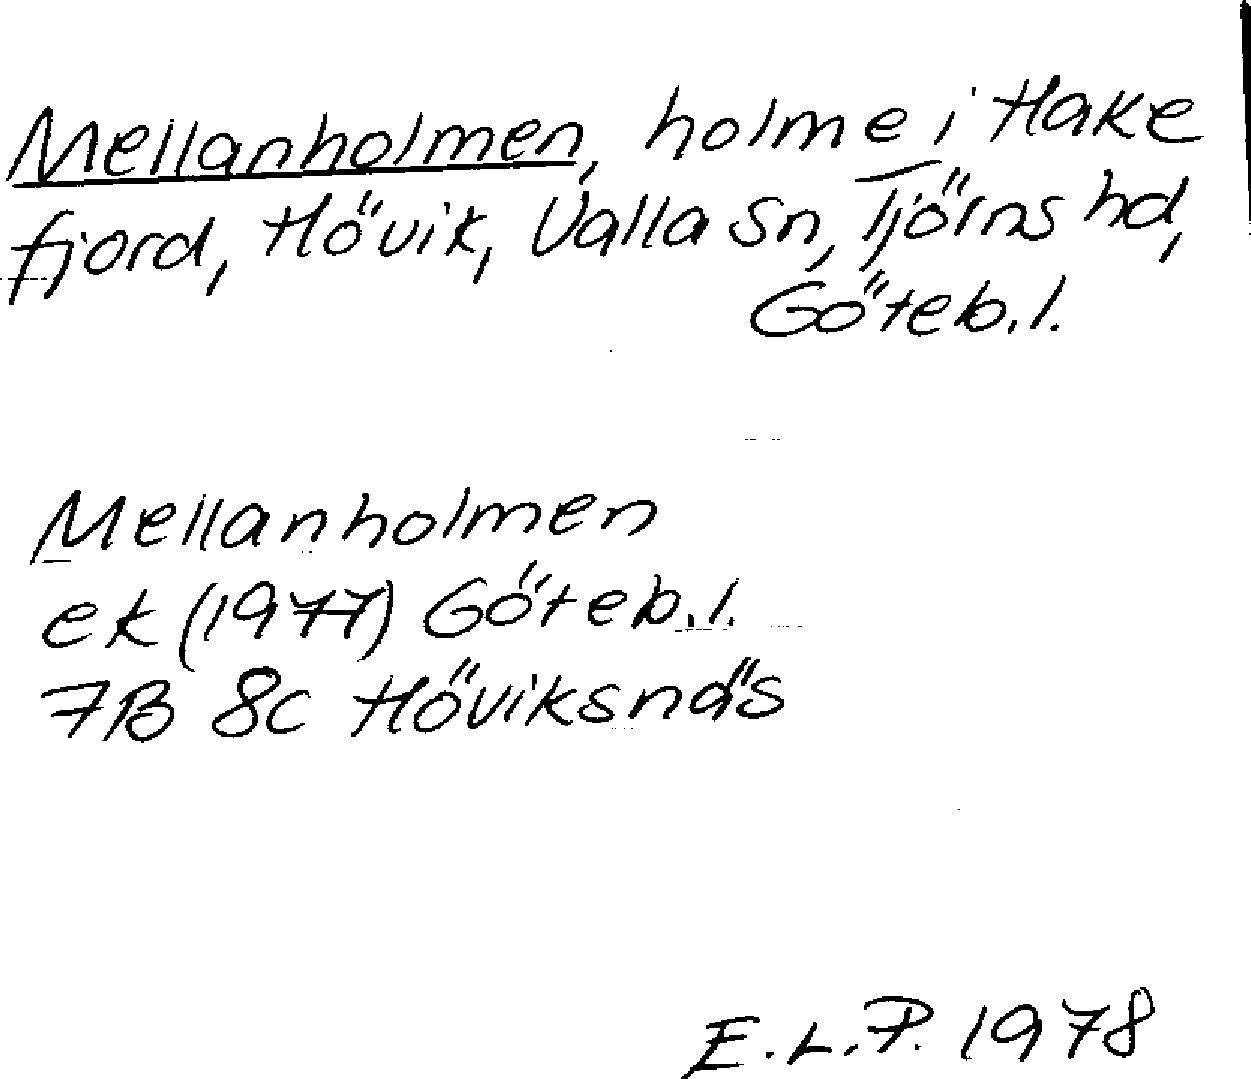 Mellanholmen, holme i Hake
fjord, Hövik, Valla sn, Tjörns hd,
Göteb.l.
Mellanholmen
ek (1977) Göteb.l.
7B 8c Höviksnäs
E.L.P. 1978